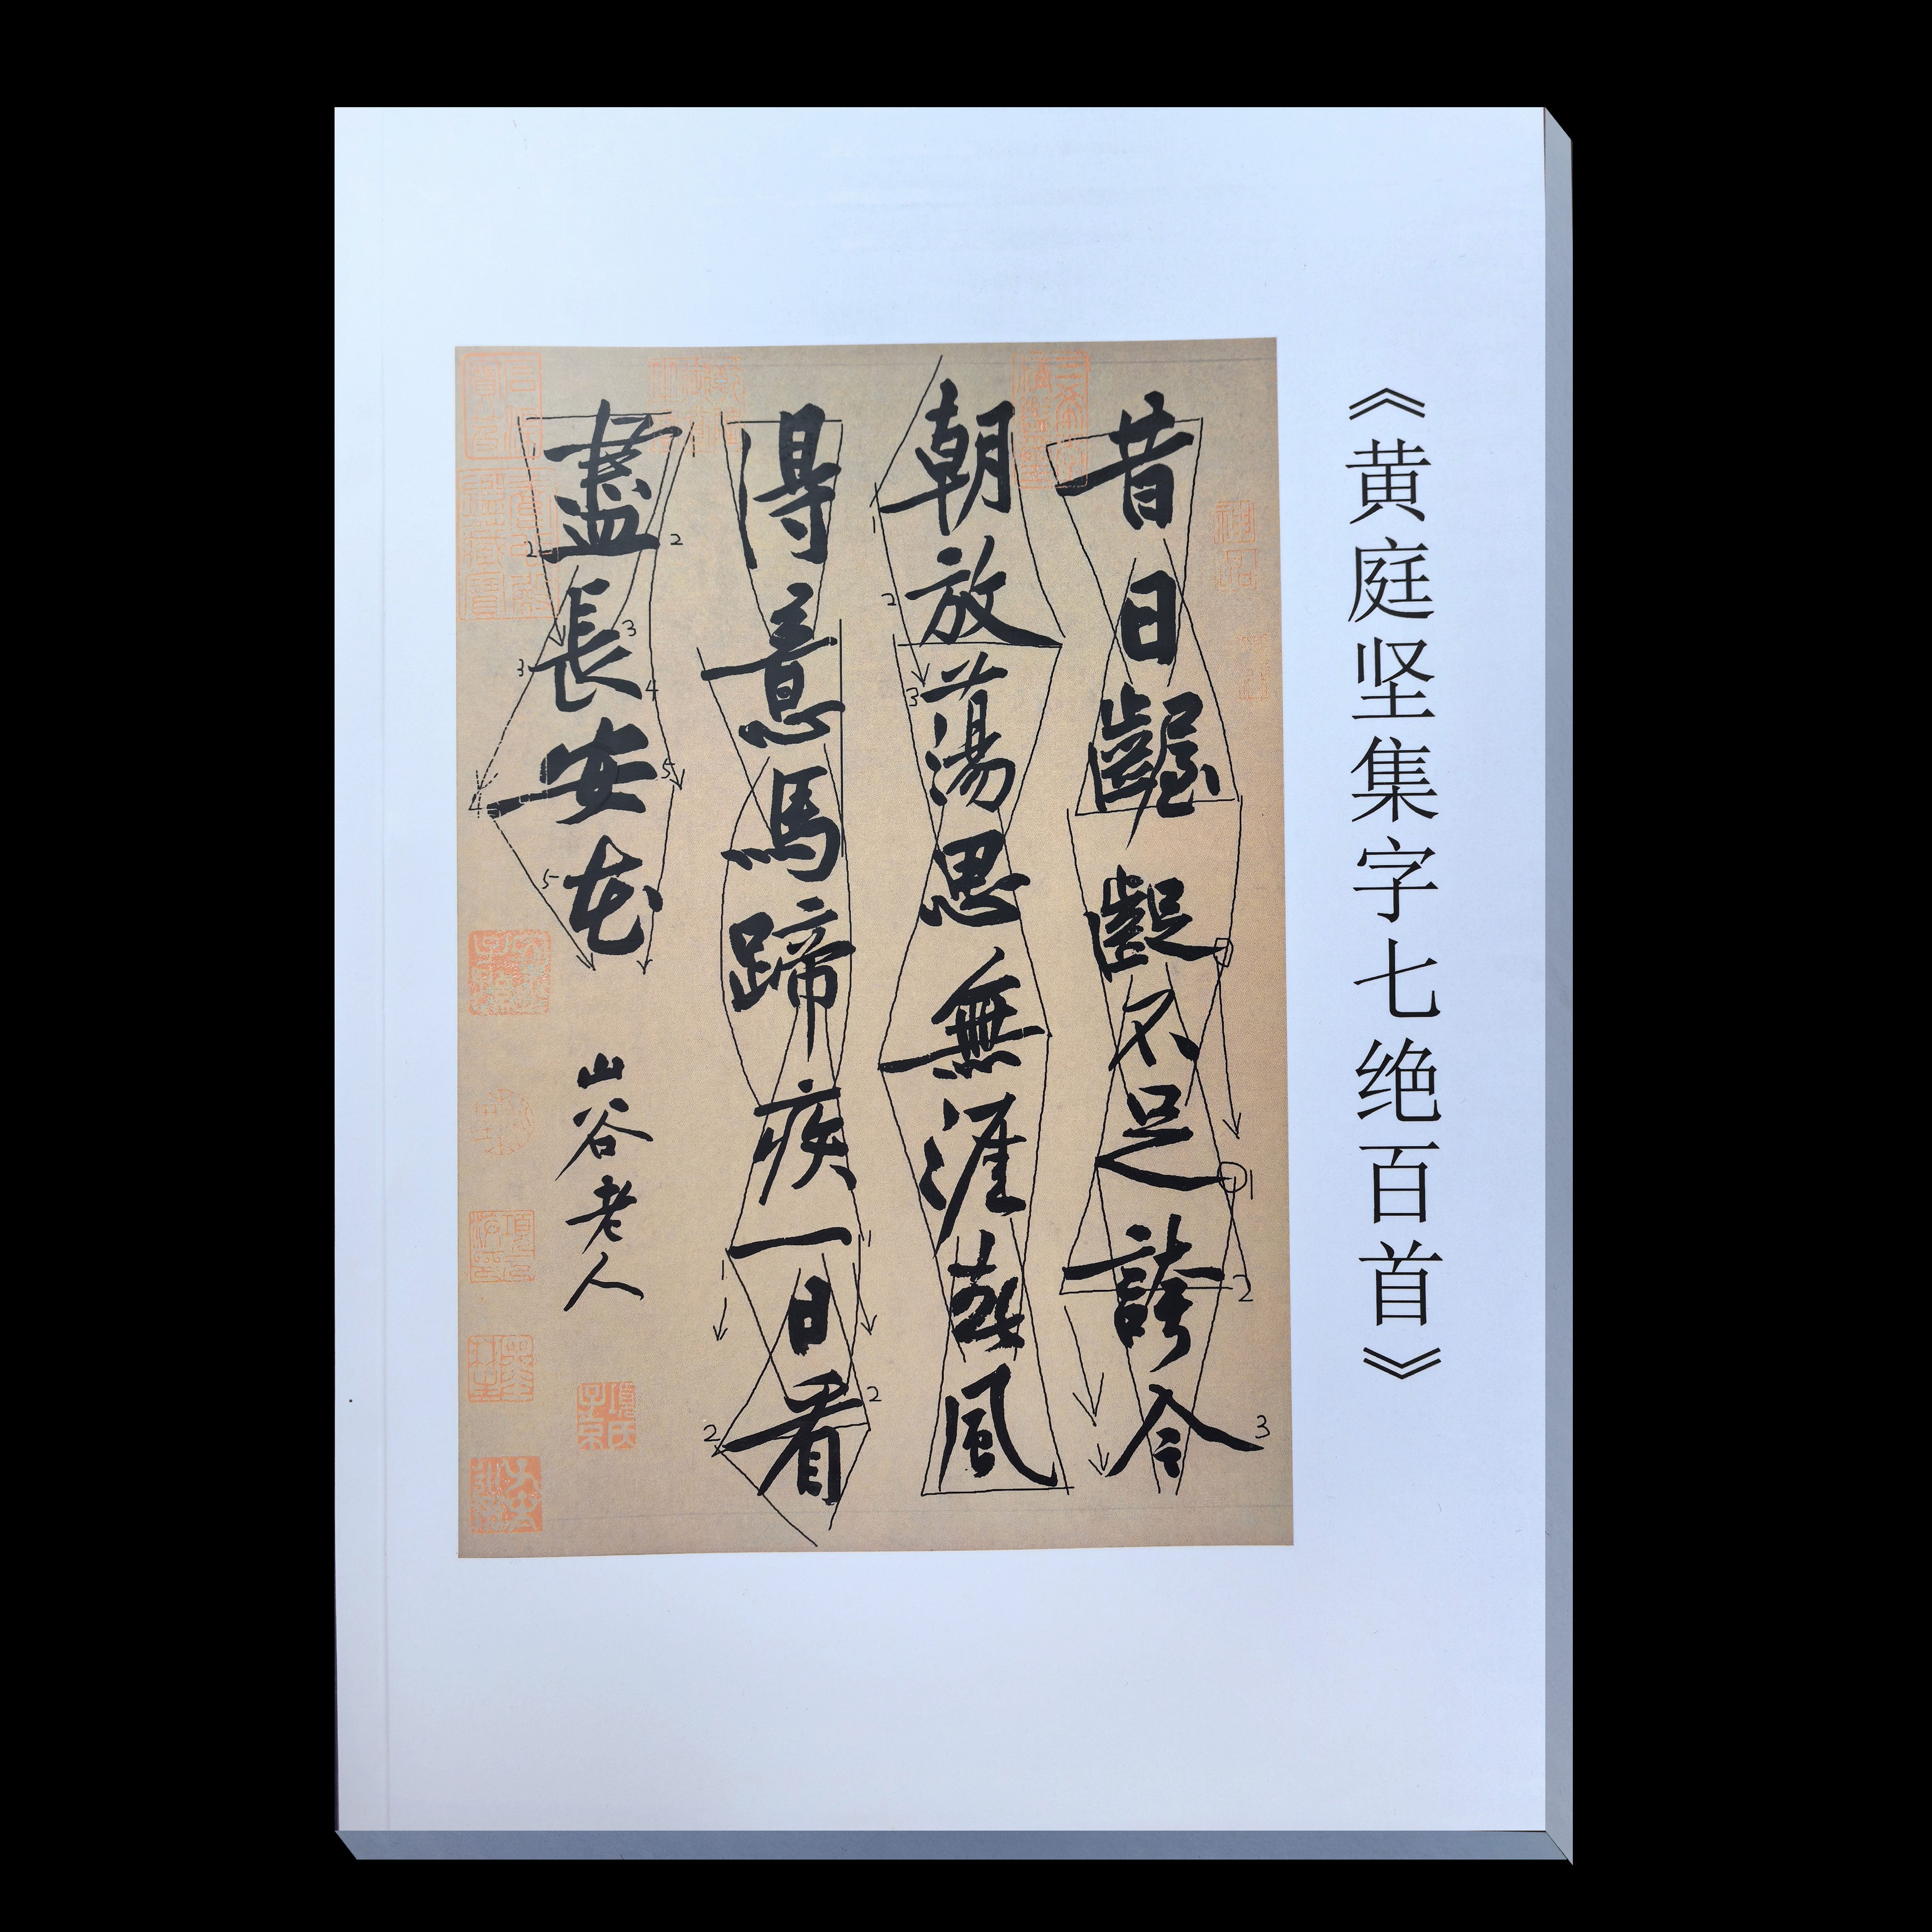 《黄庭坚集字七绝百首》
昔日齷齪不足誇今
朝放蕩思無涯春風
得意馬蹄疾一日看
盡長安花
山谷老人